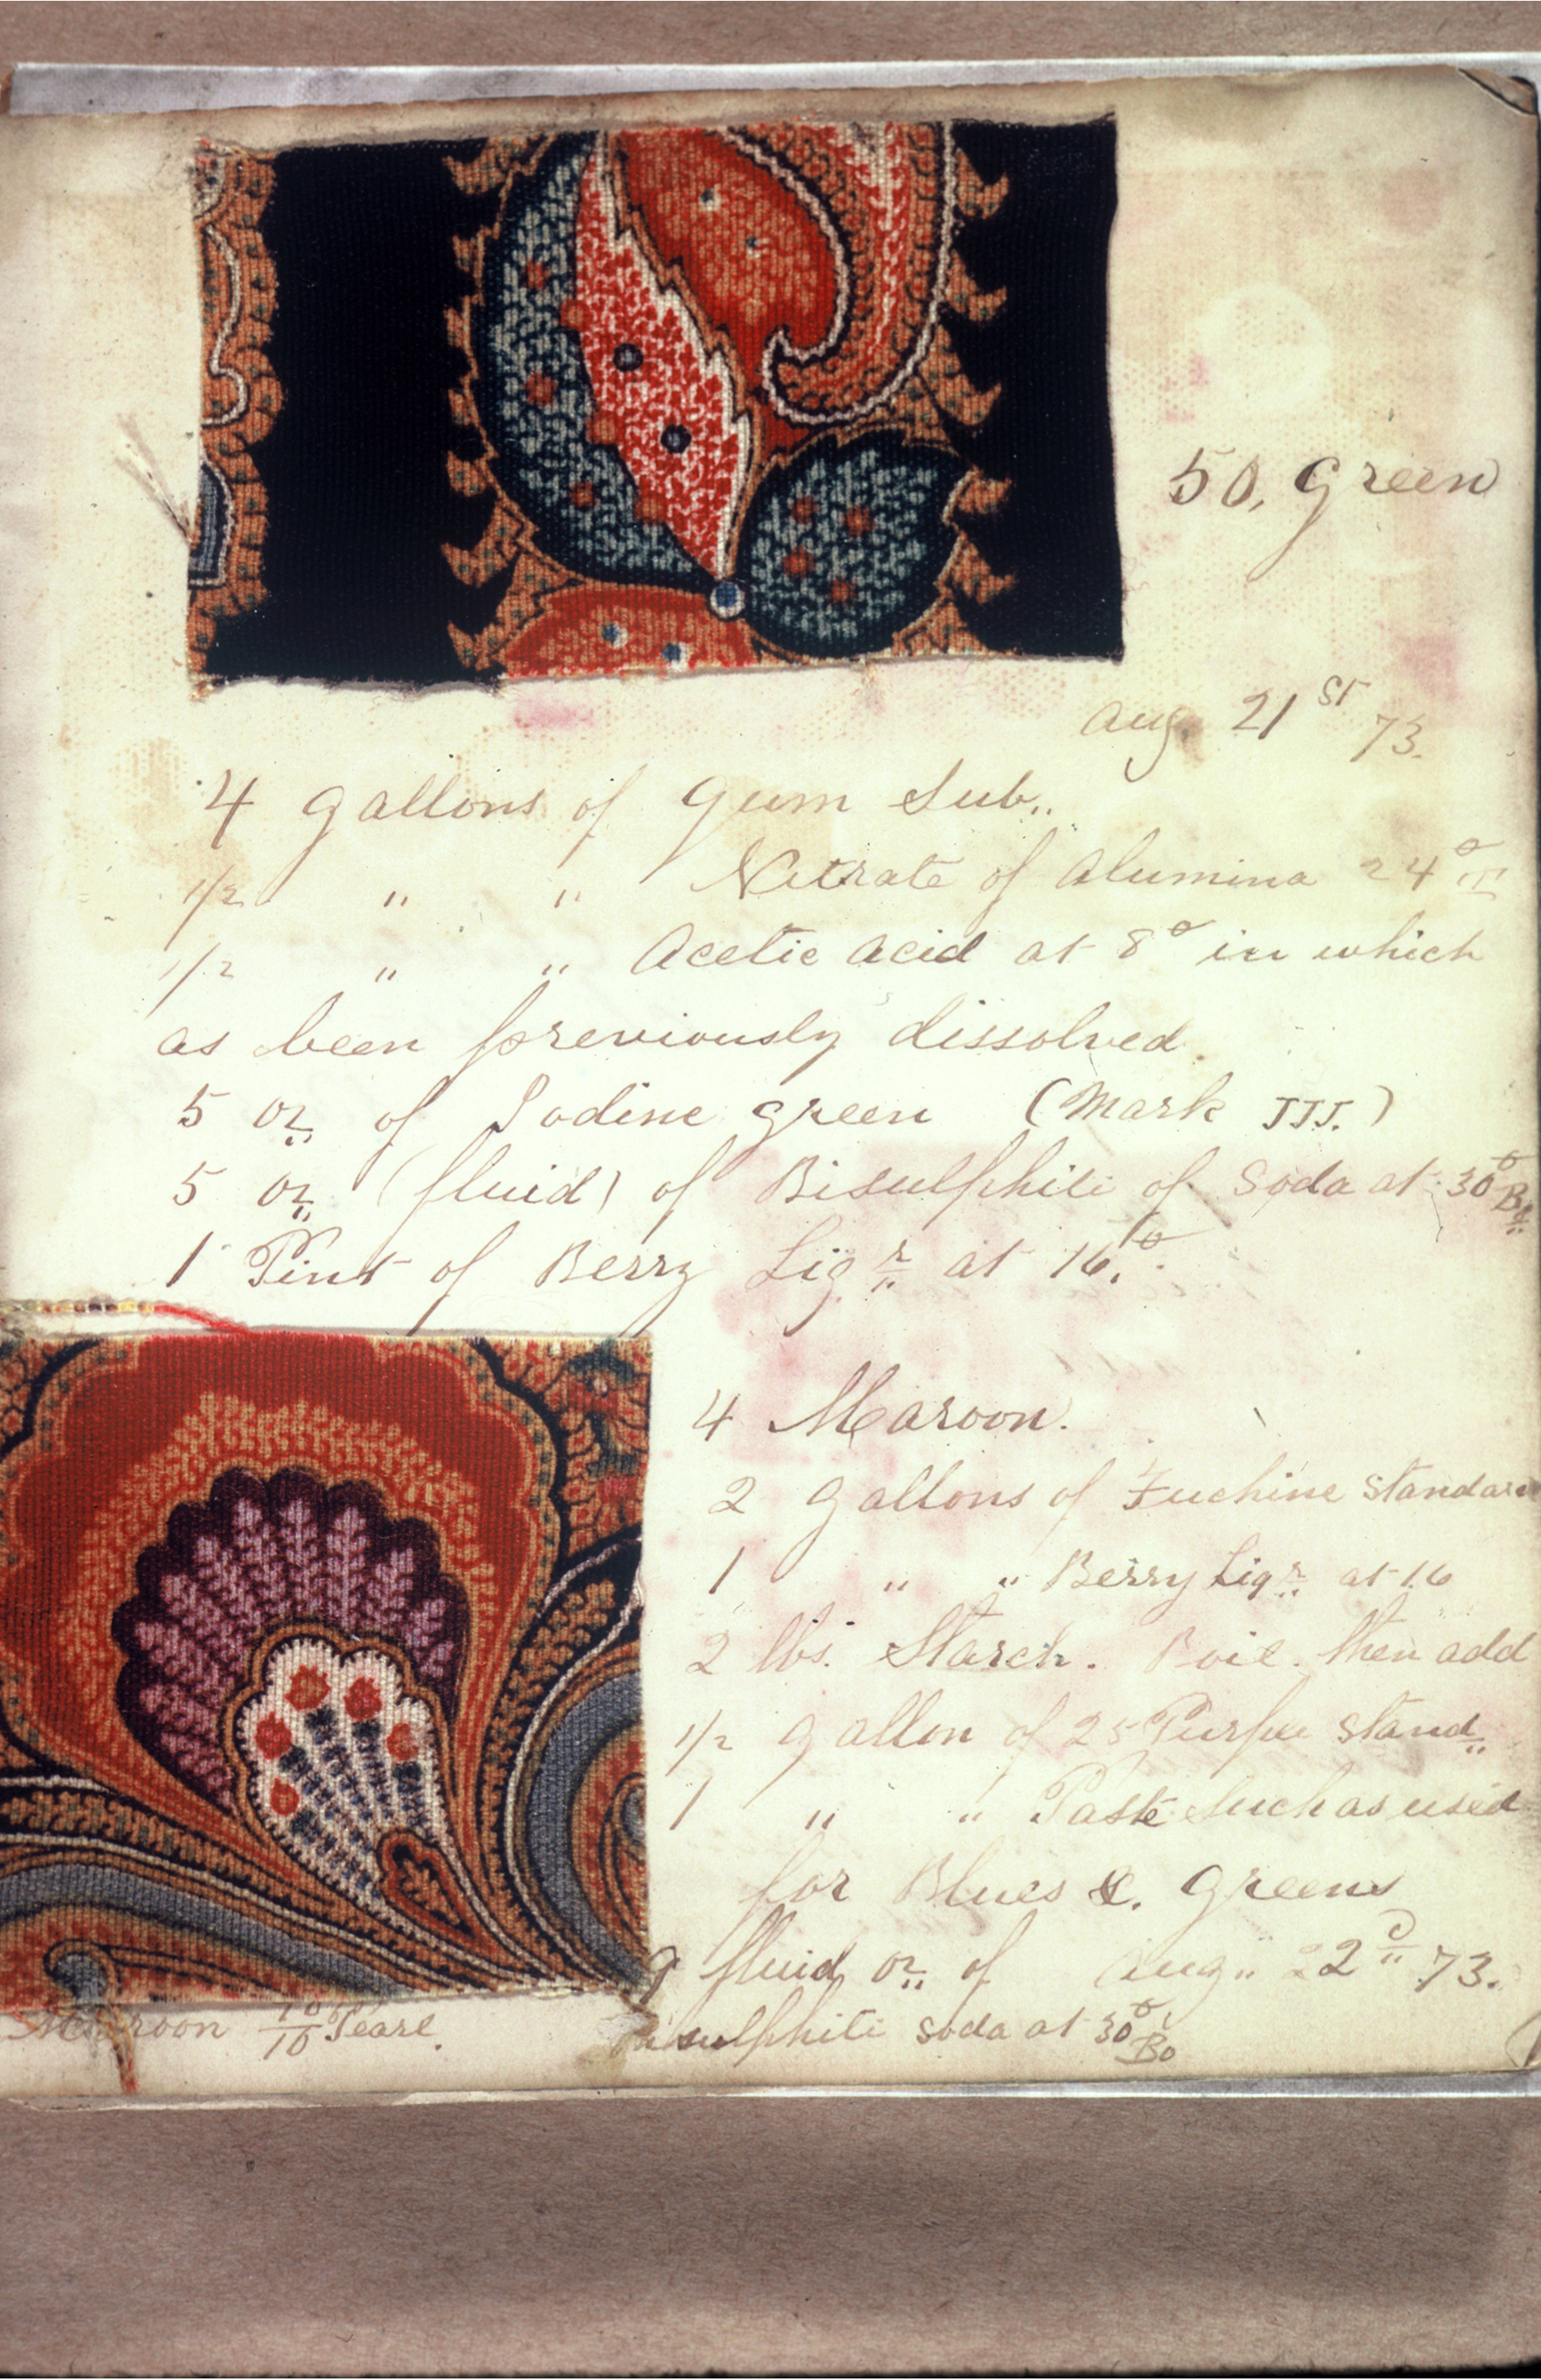 50, Green
Aug. 21st 73.
4 gallons of Gum Sub..
1/2 " " Nitrate of Alumina 24° T
1/2 " " Acetic Acid at 8° in which
as been previously dissolved.
5 oz of Iodine Green (Mark JJJ.)
5 oz (fluid) of Bisulphite of Soda at 30° Be
1 Pint of Berry Liqr at 16.°
4 Maroon.
2 gallons of Fuchine Standard
1 " " Berry Liqr at 16
2 lbs. Starch. Boil. then add
1/2 gallon of 25 Purple Stand
1 " " Paste Such as used
for Blues &. Greens
9 fluid oz of Aug.. 22d 73.
Bisulphite Soda at 30° Be
Maroon 10/10 Pearl.